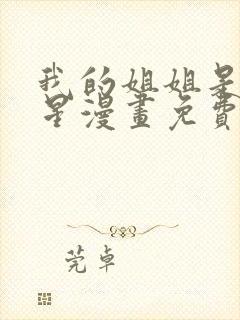 我的姐姐是
星漫畫免費
莞卓